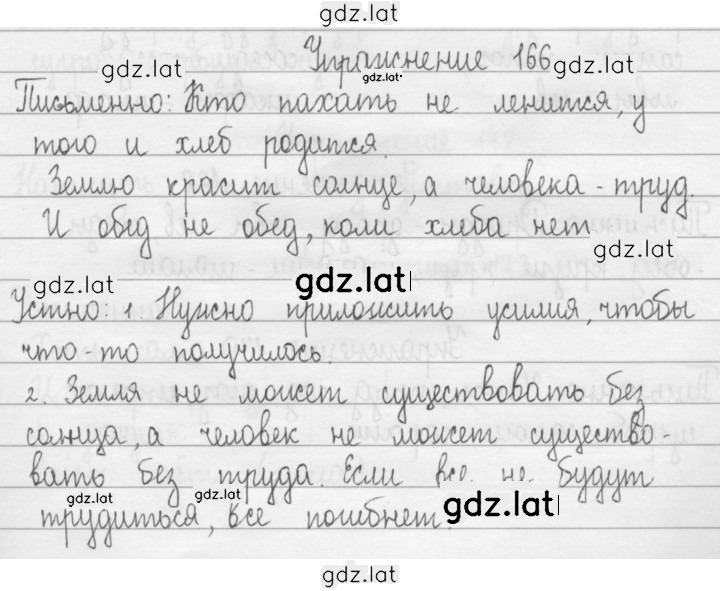 gdz.lat
Упражнение 166
gdz.lat
gdz.lat
Письменно: Кто пахать не ленится, у
того и хлеб родится.
Землю красит солнце, а человека - труд.
И обед не обед, коли хлеба нет
gdz.lat
gdz.lat
gdz.lat
Устно: 1. Нужно приложить усилия, чтобы
что-то получилось.
2. Земля не может существовать без
солнца, а человек не может существо-
вать без труда. Если все не будут
gdz.lat
gdz.lat
gdz.lat
трудиться, все погибнет.
gdz.lat